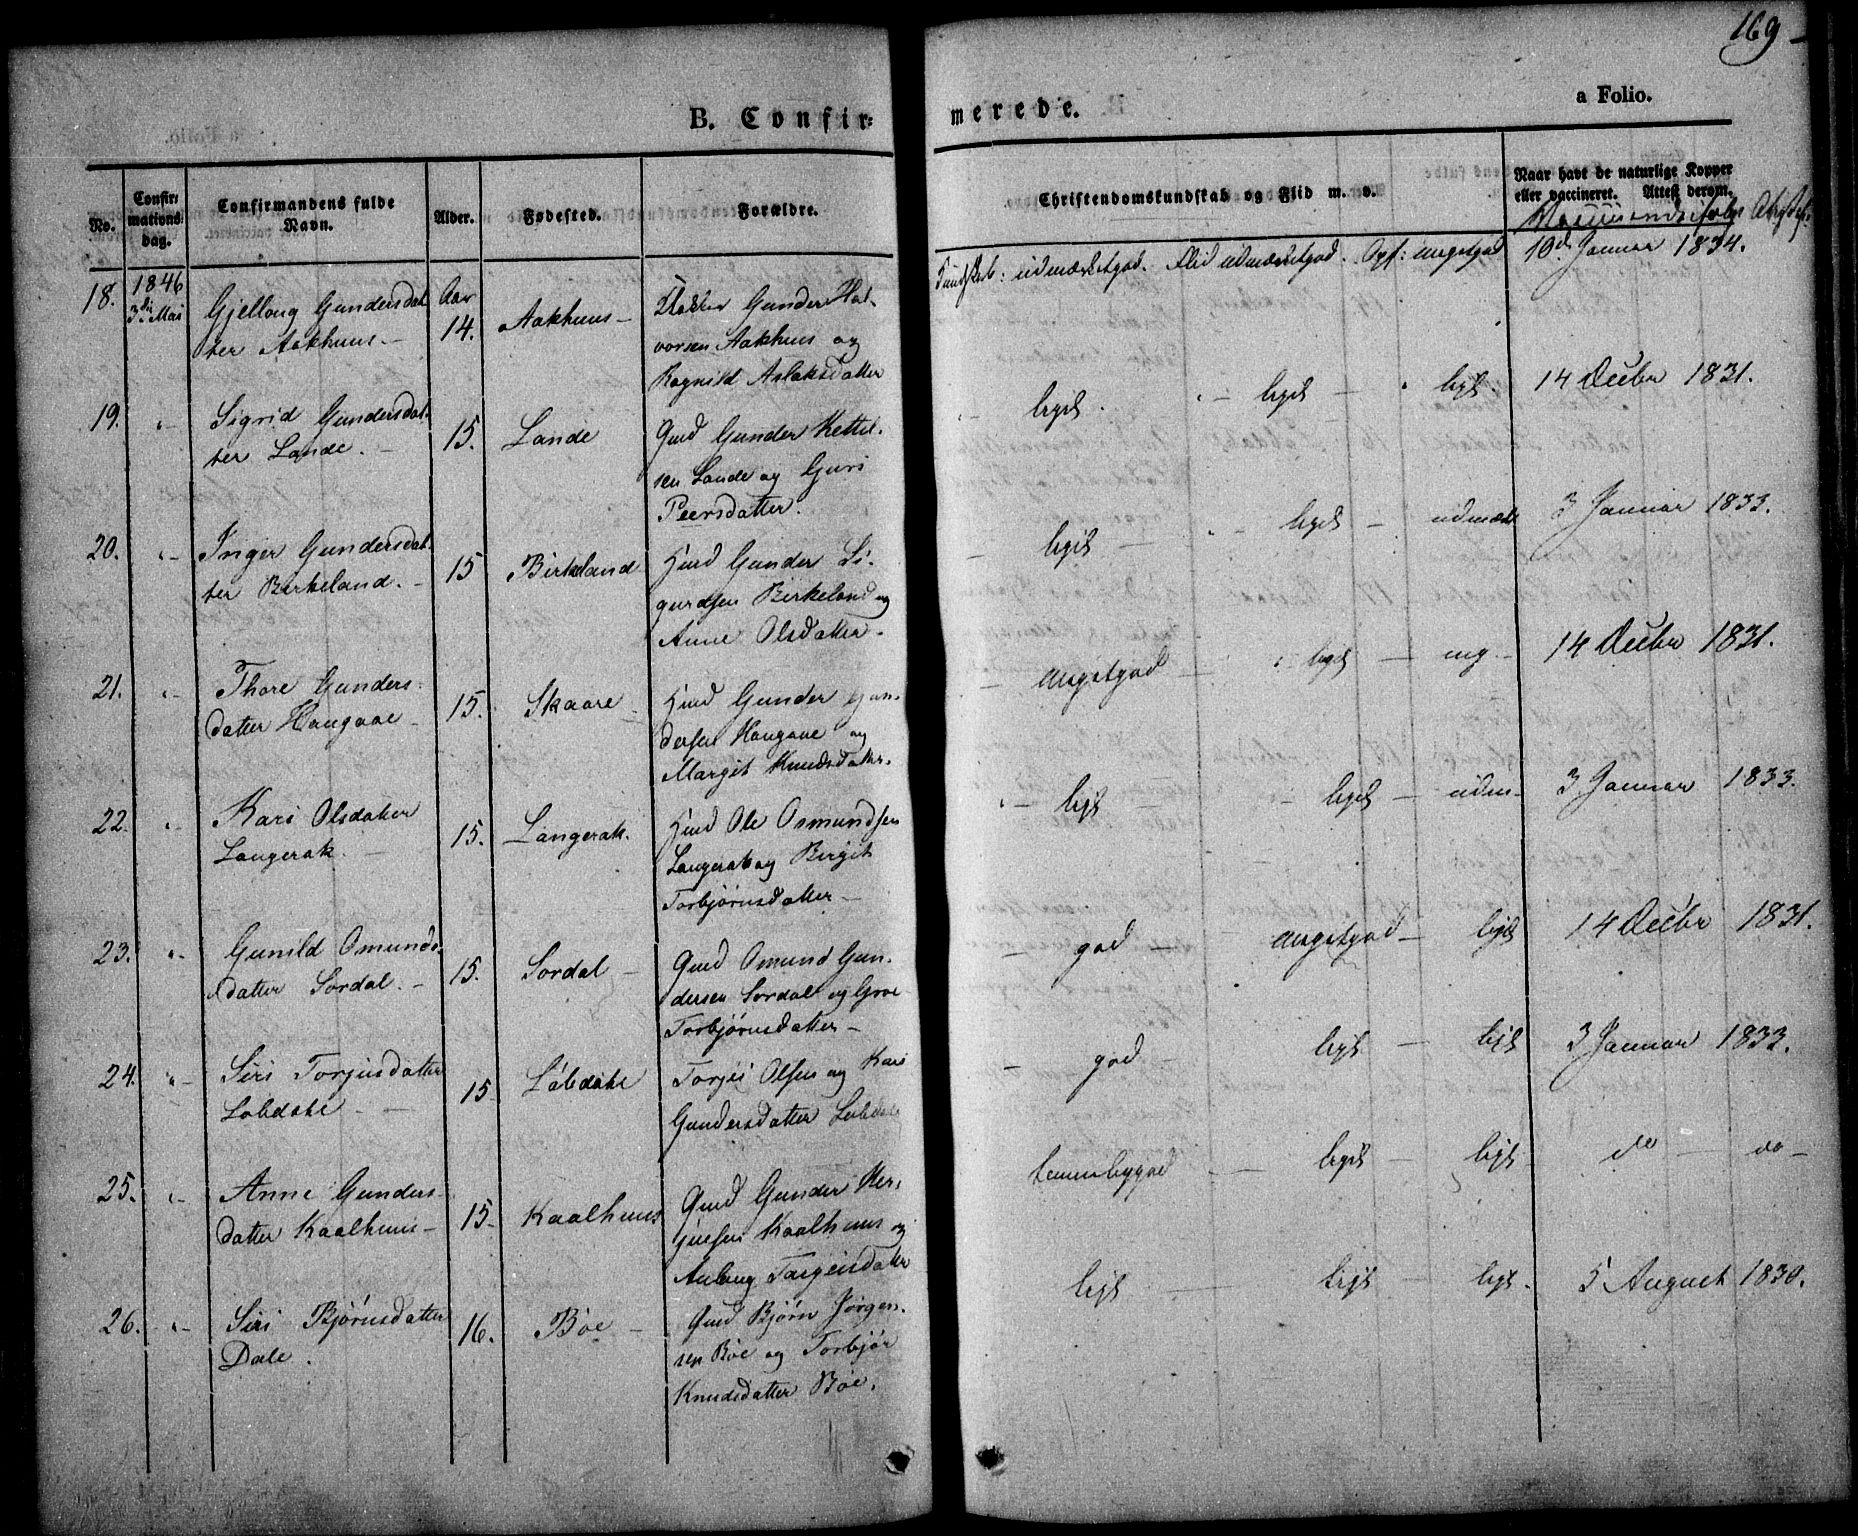 169
a Folio.
B. Confir=
merede.
No.
Confir=
mations
dag.
Confirmandens fulde
Navn.
Alder.
Fødested.
Forældre.
Christendomskundskab og Flid m. v.
Naar havt de naturlige Kopper
eller vaccineret. Attest derom.
18.
1846
3die Mai
Gjellaug Gundersdat-
ter Aakhuus.
Aar
14.
Aakhuus
Gunder Hal-
vorsen Aakhuus og
Ragnild Aslaksdatter
Kundskab: udmærketgod. Flid udmærketgod. Opf: megetgod
10d Januar 1834.
19.
Sigrid Gundersdat-
ter Lande.
15.
Lande
Gmd Gunder Kettil-
sen Lande og Guri
Peersdatter.
liget
liget
ligt
14 Decbr 1831.
20.
Inger Gundersdat-
ter Birkeland.
15
Birkeland
Hmd Gunder Si-
gurdsen Birkeland og
Anne Olsdatter
liget
liget
udmærk
3 Januar 1833.
21.
Thore Gunders-
datter Haugaae
15.
Skaare
Hmd Gunder Gun-
dersen Haugaae og
Margit Knudsdatter.
megetgod
liget
mg
14 Decbr 1831.
22.
Kari Olsdatter
Langerak.
15.
Langerak.
Hmd Ole Osmundsen
Langerak og Birgit
Torbjørnsdatter
ligt
liget
udm
3 Januar 1833.
23.
Gunild Omunds-
datter Sordal.
15.
Sordal
Gmd Omund Gun-
dersen Sordal og Groe
Torbjørnsdatter
god
megetgod
ligt
14 Decbr 1831.
24.
Siri Torjusdatter
Løbdahl
15
Løbdahl
Torjei Olsen og Kari
Gundersdatter
god
ligt
ligt
3 Januar 1833.
25.
Anne Gunders-
datter Kaalhuus
15
Kaalhuus
Gmd Gunder Ker-
juesen Kaalhuus og
Anlaug Targeisdatter
temmeliggod
liget
ligt
do do
26.
Siri Bjørnsdatter
Dale.
16.
Bøe
Gmd Bjørn Jørgen-
sen Bøe og Torbjør
Knudsdatter Bøe.
ligt
ligt
ligt.
5 August 1830.